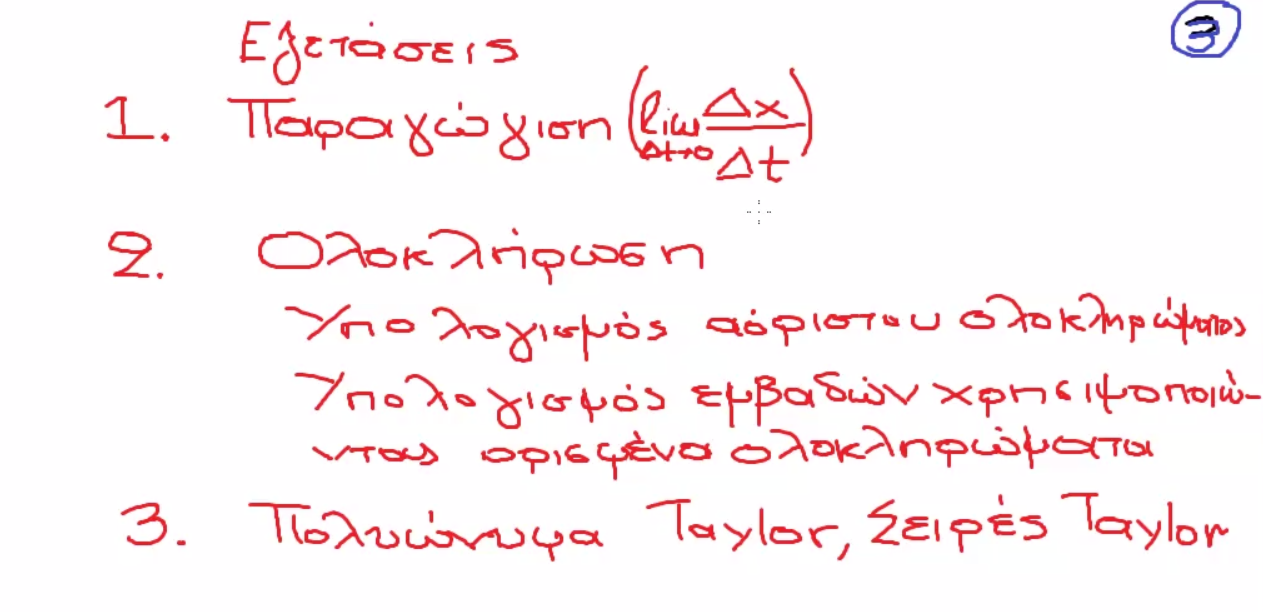 3
Εξετάσεις
1. Παραγώγιση (lim Δx/Δt)
Δt→0
2. Ολοκλήρωση
Υπολογισμός αόριστου ολοκληρώματος
Υπολογισμός εμβαδών χρησιμοποιώ-
ντας ορισμένα ολοκληρώματα
3. Πολυώνυμα Taylor, Σειρές Taylor